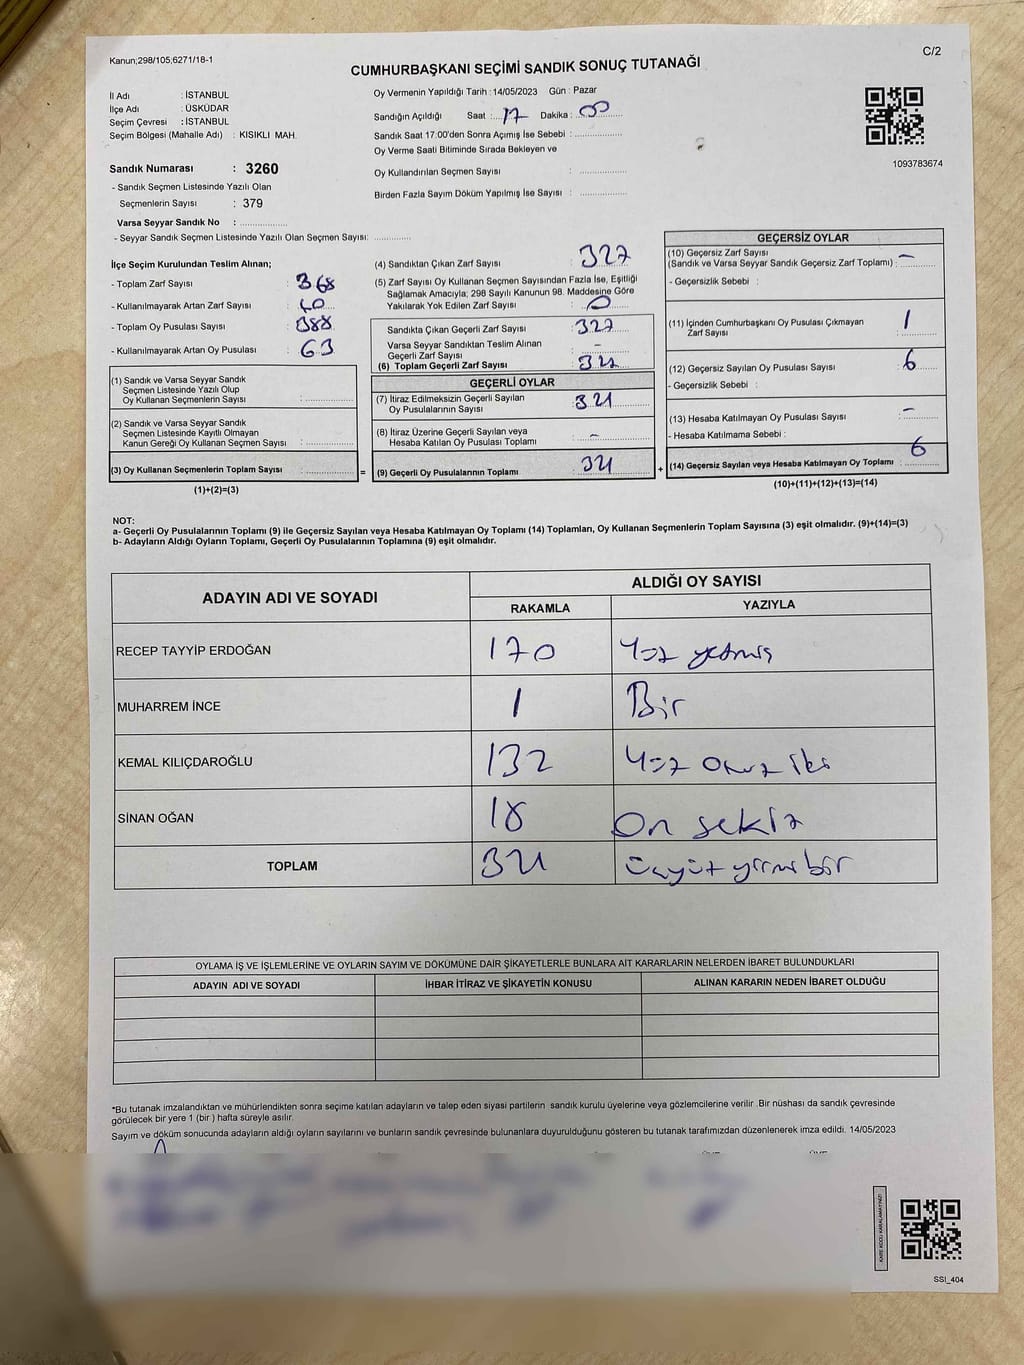 Kanun;298/105;6271/18-1
C/2
CUMHURBAŞKANI SEÇİMİ SANDIK SONUÇ TUTANAĞI
İl Adı : İSTANBUL
İlçe Adı : ÜSKÜDAR
Seçim Çevresi : İSTANBUL
Seçim Bölgesi (Mahalle Adı) : KISIKLI MAH.
Oy Vermenin Yapıldığı Tarih :14/05/2023 Gün : Pazar
Sandığın Açıldığı Saat :..17.... Dakika :..00
Sandık Saat 17.00'den Sonra Açımış İse Sebebi :
Oy Verme Saati Bitiminde Sırada Bekleyen ve
Oy Kullandırılan Seçmen Sayısı :
Birden Fazla Sayım Döküm Yapılmış İse Sayısı :
1093783674
Sandık Numarası : 3260
- Sandık Seçmen Listesinde Yazılı Olan
Seçmenlerin Sayısı : 379
Varsa Seyyar Sandık No :
- Seyyar Sandık Seçmen Listesinde Yazılı Olan Seçmen Sayısı:
İlçe Seçim Kurulundan Teslim Alınan;
- Toplam Zarf Sayısı : 368
- Kullanılmayarak Artan Zarf Sayısı :
- Toplam Oy Pusulası Sayısı : 388
- Kullanılmayarak Artan Oy Pusulası : 63
(1) Sandık ve Varsa Seyyar Sandık
Seçmen Listesinde Yazılı Olup
Oy Kullanan Seçmenlerin Sayısı :
(2) Sandık ve Varsa Seyyar Sandık
Seçmen Listesinde Kayıtlı Olmayan
Kanun Gereği Oy Kullanan Seçmen Sayısı :
(3) Oy Kullanan Seçmenlerin Toplam Sayısı : =
(1)+(2)=(3)
(4) Sandıktan Çıkan Zarf Sayısı : 327
(5) Zarf Sayısı Oy Kullanan Seçmen Sayısından Fazla İse, Eşitliği
Sağlamak Amacıyla; 298 Sayılı Kanunun 98. Maddesine Göre
Yakılarak Yok Edilen Zarf Sayısı : 0
Sandıkta Çıkan Geçerli Zarf Sayısı : 327
Varsa Seyyar Sandıktan Teslim Alınan
Geçerli Zarf Sayısı : -
(6) Toplam Geçerli Zarf Sayısı :
GEÇERLİ OYLAR
(7) İtiraz Edilmeksizin Geçerli Sayılan
Oy Pusulalarının Sayısı : 321
(8) İtiraz Üzerine Geçerli Sayılan veya
Hesaba Katılan Oy Pusulası Toplamı : -
(9) Geçerli Oy Pusulalarının Toplamı : 321 +
GEÇERSİZ OYLAR
(10) Geçersiz Zarf Sayısı
(Sandık ve Varsa Seyyar Sandık Geçersiz Zarf Toplamı) : -
- Geçersizlik Sebebi :
(11) İçinden Cumhurbaşkanı Oy Pusulası Çıkmayan
Zarf Sayısı : 1
(12) Geçersiz Sayılan Oy Pusulası Sayısı : 6
- Geçersizlik Sebebi :
(13) Hesaba Katılmayan Oy Pusulası Sayısı : -
- Hesaba Katılmama Sebebi :
(14) Geçersiz Sayılan veya Hesaba Katılmayan Oy Toplamı : 6
(10)+(11)+(12)+(13)=(14)
NOT:
a- Geçerli Oy Pusulalarının Toplamı (9) ile Geçersiz Sayılan veya Hesaba Katılmayan Oy Toplamı (14) Toplamları, Oy Kullanan Seçmenlerin Toplam Sayısına (3) eşit olmalıdır. (9)+(14)=(3)
b- Adayların Aldığı Oyların Toplamı, Geçerli Oy Pusulalarının Toplamına (9) eşit olmalıdır.
ADAYIN ADI VE SOYADI
ALDIĞI OY SAYISI
RAKAMLA YAZIYLA
RECEP TAYYİP ERDOĞAN 170 Yüz yetmiş
MUHARREM İNCE 1 Bir
KEMAL KILIÇDAROĞLU 132 Yüz otuz iki
SİNAN OĞAN 18 On sekiz
TOPLAM 321 üçyüz yirmi bir
OYLAMA İŞ VE İŞLEMLERİNE VE OYLARIN SAYIM VE DÖKÜMÜNE DAİR ŞİKAYETLERLE BUNLARA AİT KARARLARIN NELERDEN İBARET BULUNDUKLARI
ADAYIN ADI VE SOYADI İHBAR İTİRAZ VE ŞİKAYETİN KONUSU ALINAN KARARIN NEDEN İBARET OLDUĞU
*Bu tutanak imzalandıktan ve mühürlendikten sonra seçime katılan adayların ve talep eden siyasi partilerin sandık kurulu üyelerine veya gözlemcilerine verilir .Bir nüshası da sandık çevresinde
görülecek bir yere 1 (bir ) hafta süreyle asılır.
Sayım ve döküm sonucunda adayların aldığı oyların sayılarını ve bunların sandık çevresinde bulunanlara duyurulduğunu gösteren bu tutanak tarafımızdan düzenlenerek imza edildi. 14/05/2023
KARE KODU KARALAMAYINIZ!
SSİ_404